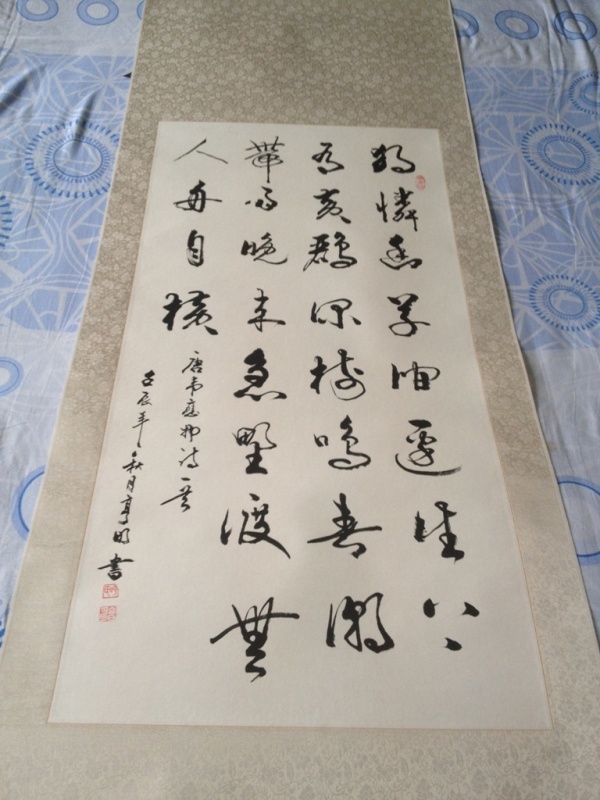 独憐幽草澗邊生上
有黄鹂深樹鳴春潮
帶雨晚来急野渡無
人舟自横
唐韦應物詩一首
壬辰年秋月亨明書